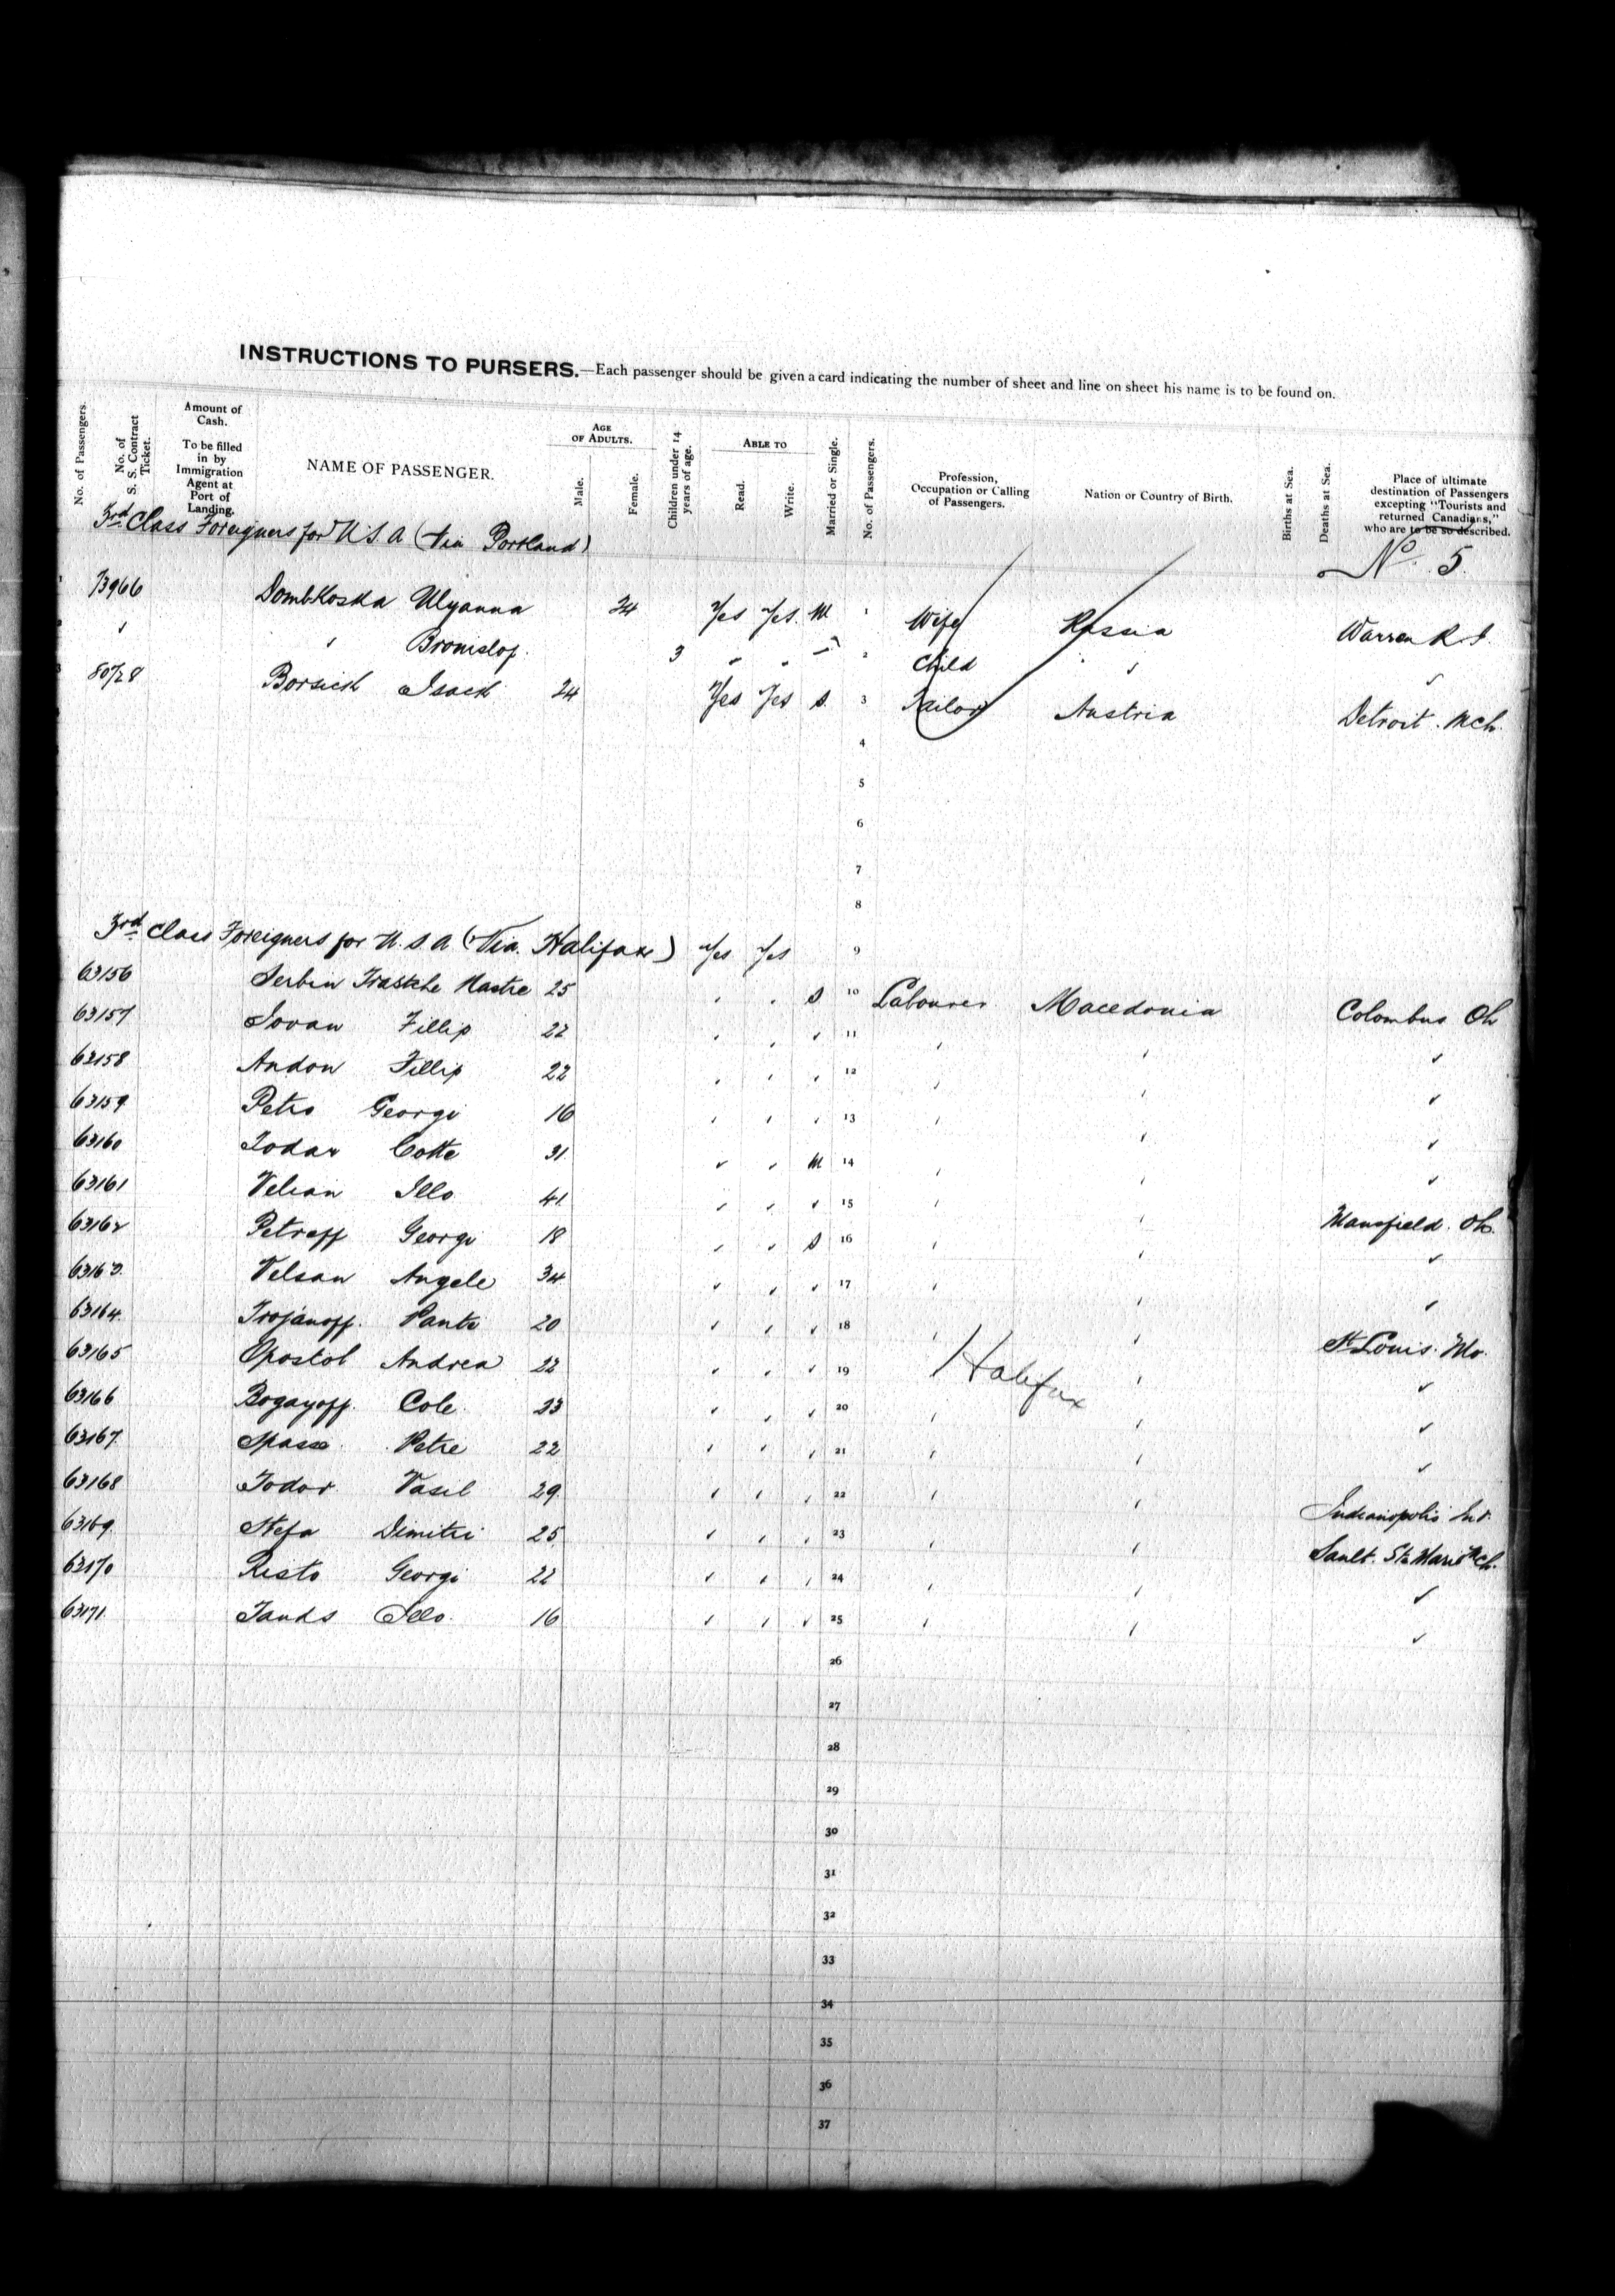 INSTRUCTIONS TO PURSERS.—Each passenger should be given a card indicating the number of sheet and line on sheet his name is to be found on.
No. of Passengers. No. of S. S. Contract Ticket. Amount of Cash. To be filled in by Immigration Agent at Port of Landing. NAME OF PASSENGER. AGE OF ADULTS. Male. Female. Children under 14 years of age. ABLE TO Read. Write. Married or Single. No. of Passengers. Profession, Occupation or Calling of Passengers. Nation or Country of Birth. Births at Sea. Deaths at Sea. Place of ultimate destination of Passengers excepting "Tourists and returned Canadians," who are to be so described.
3rd Class Foreigners for U.S.A (Via Portland)
No. 5.
73966 Dombkoska Ulyanna 24 Yes Yes. M 1 Wife Russia Warren R.I.
" " Bronislof. 3 " " " 2 Child " " "
80728 Borsich Isack 24 Yes Yes S. 3 Tailor Austria Detroit. Mch.
4
5
6
7
8
3rd Class Foreigners for U.S.A (Via. Halifax) Yes Yes 9
63156 Serbin Traskhe Nastre 25 " " S 10 Labourer Macedonia Colombus Oh
63157 Jovan Fillip 22 " " " 11 " " "
63158 Andon Fillip 22 " " " 12 " " "
63159 Petro Georgi 16 " " " 13 " " "
63160 Todar Cotte 31 " " M 14 " " "
63161 Velian Illo 41 " " " 15 " " Mansfield. Oh.
63162 Petroff Georgi 18 " " S 16 " " "
63163 Velsan Angele 34 " " " 17 " " "
63164 Trojanoff. Pante 20 " " " 18 " " St Louis. Mo.
63165 Opostol Andrea 22 " " " 19 " "
Halifax
63166 Bogayoff. Cole 23 " " " 20 " " "
63167 Spasse. Petre 22 " " " 21 " " "
63168 Todor Vasil 29 " " " 22 " " Indianopolis Ind.
63169 Stefa Dimitri 25 " " " 23 " " Sault. Ste Marie Mch.
63170 Risto Georgi 22 " " " 24 " " "
63171 Tands Illo. 16 " " " 25 " " "
26
27
28
29
30
31
32
33
34
35
36
37